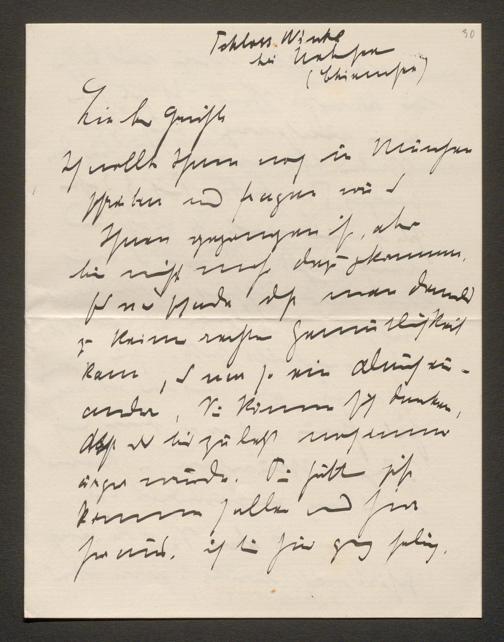 30
Schloss Winkl
bei Grabenstätt
(Chiemsee)
Lieber
Ich wollte Ihnen noch in München
schreiben und fragen wie es
Ihnen gegangen ist, aber
bin nicht mehr dazu gekommen.
Es war schade daß man damals
zu keiner rechten Gemütlichkeit
kam, es war ja ein durchein-
ander, Sie können sich denken,
daß es bis zuletzt noch immer
ärger wurde. Sie hätten
kommen sollen und hier
ich bin hier ganz selig.